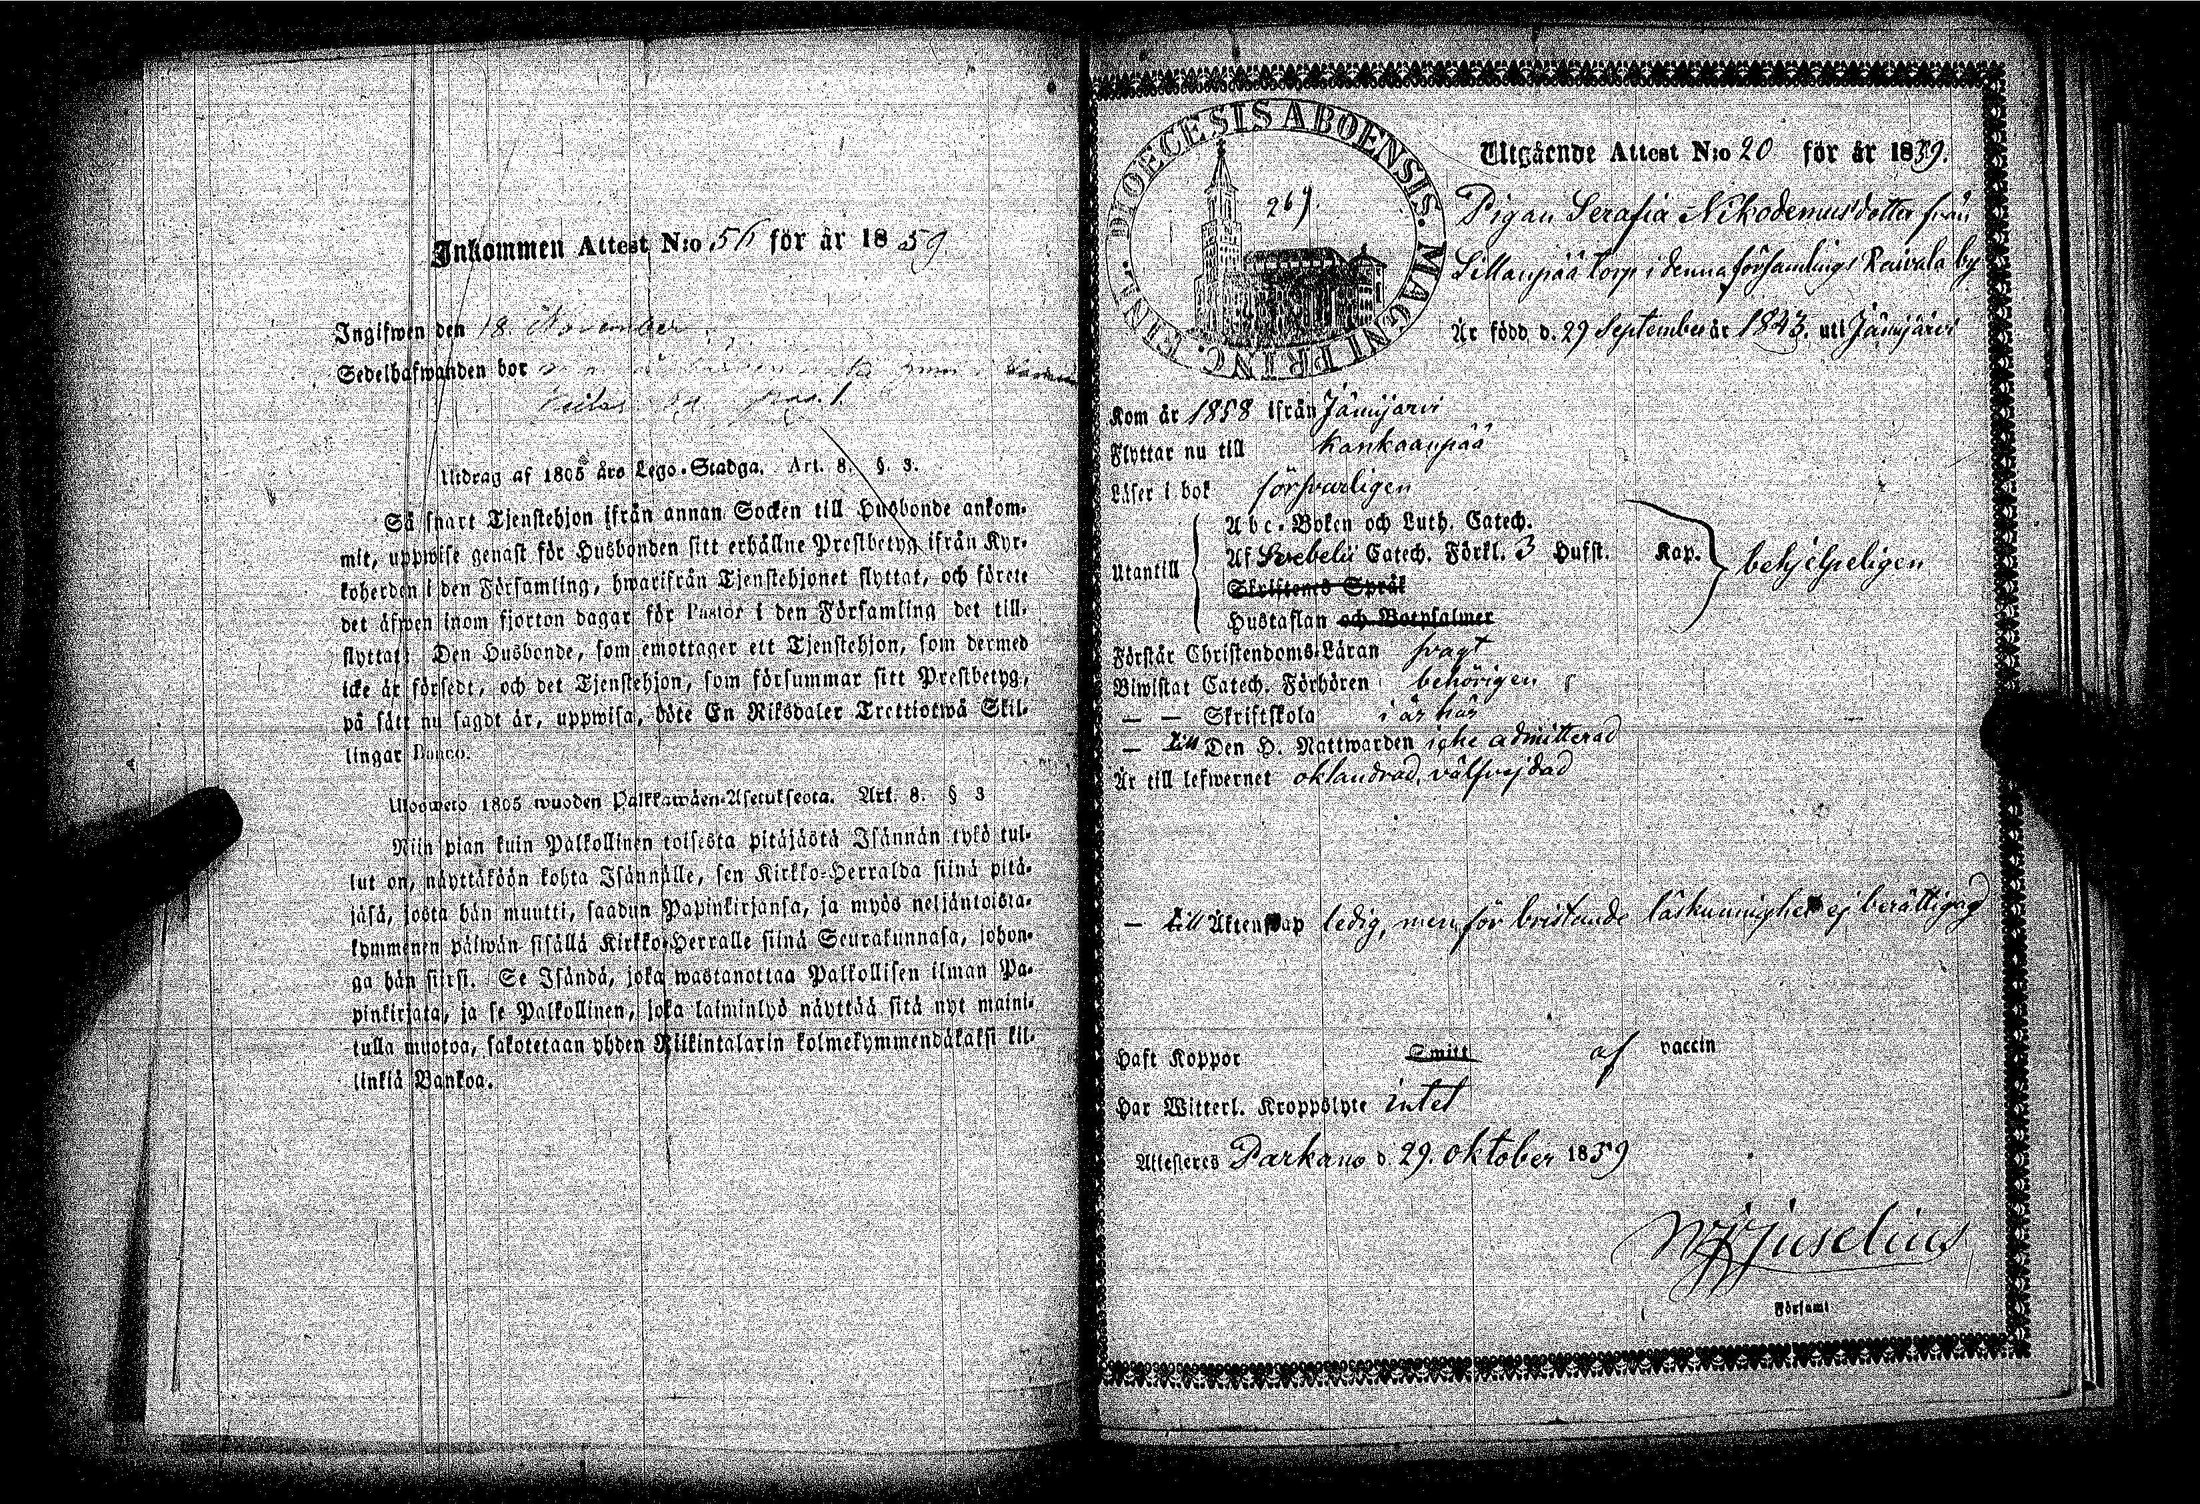 Inkommen Attest N:o 56 för år 1859.
Ingifwen den 18. November
Sedelhafwanden bor
Utdrag af 1805 års Lego-Stadga. Art. 8. §. 3.
Så snart Tjenstehjon ifrån annan Socken till Husbonde ankom-
mit, uppwise genast för Husbonden sitt erhållne Prestbetyg ifrån Kyr-
koherden i den Församling, hwarifrån Tjenstehjonet flyttat, och förete
det äfwen inom fjorton dagar för Pastor i den Församling det till-
flyttat. Den Husbonde, som emottager ett Tjenstehjon, som dermed
icke är försedt, och det Tjenstehjon, som försummar sitt Prestbetyg,
på sätt nu sagdt är, uppwisa, böte En Riksdaler Trettiotwå Skil-
lingar Banco.
Ulosweto 1805 wuoden Palkkawäen-Asetuksesta. Art. 8. § 3
Niin pian kuin Palkollinen toisesta pitäjästä Isännän tykö tul-
lut on, näyttäköön kohta Isännälle, sen Kirkko-Herralda siinä pitä-
jäsä, josta hän muutti, saadun Papinkirjansa, ja myös neljäntoista-
kymmenen päiwän sisällä Kirkko-Herralle siinä Seurakunnasa, johon-
ga hän siirsi. Se Isändä, joka wastanottaa Palkollisen ilman Pa-
pinkirjata, ja se Palkollinen, joka laiminlyö näyttää sitä nyt maini-
tulla muotoa, sakotetaan yhden Riikintalarin kolmekymmendäkaksi kil-
linkiä Bankoa.
DIOECESIS ABOENSIS. MAGNI PRINC. FINL.
269.
Utgående Attest N:o 20 för år 1859.
Pigan Serafia Nikodemusdotter från
Sillanpää torp i denna församlings Raivala by
Är född d. 29 September år 1843. uti Jämijärvi
Kom år 1858 ifrån Jämijarvi
Flyttar nu till Kankaanpää
Läser i bok försvarligen
Utantill
Abc-Boken och Luth. Catech.
Af Svebelii Catech. Förkl. 3 Hufst. Kap.
Skriftens Språk
Hustaflan och Botpsalmer
behjelpeligen
Förstår Christendoms-Läran svagt
Biwistat Catech. Förhören behörigen
— — Skriftskola i år här
— Till Den H. Nattwarden icke admitterad
Är till lefwernet oklandrad, välfrejdad
— Till Äktenskap ledig, men för bristande läskunnighet ej berättigad
Haft Koppor Smitt af vaccin
Har Witterl. Kroppslyte intet
Attesteres Parkano d. 29. Oktober 1859
Juselius
Församl